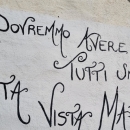 DOVREMMO AVERE
TUTTI UN
TA VISTA MA